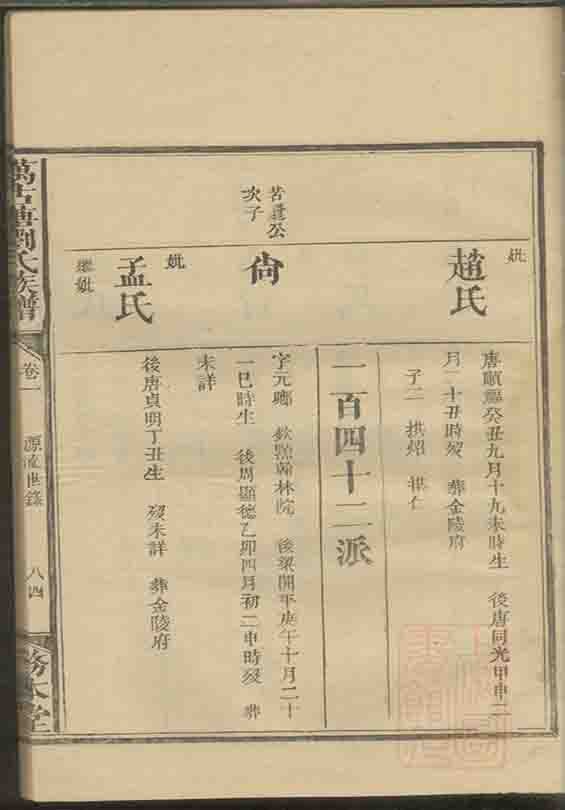 妣
趙氏
唐順癸丑九月十九未時生 後唐同光甲申二
月二十丑時歿 葬金陵府
子二 拱炤 拱仁
一百四十二派
公
次子
尙
字元鄉 欽點翰林院 後梁開平庚午十月二十
一巳時生 後周顯德乙卯四月初二申時歿 葬
未詳
妣
孟氏
繼妣
後唐貞明丁丑生 歿未詳 葬金陵府
萬古塘劉氏族譜
卷一
源流世錄
八四
務本堂